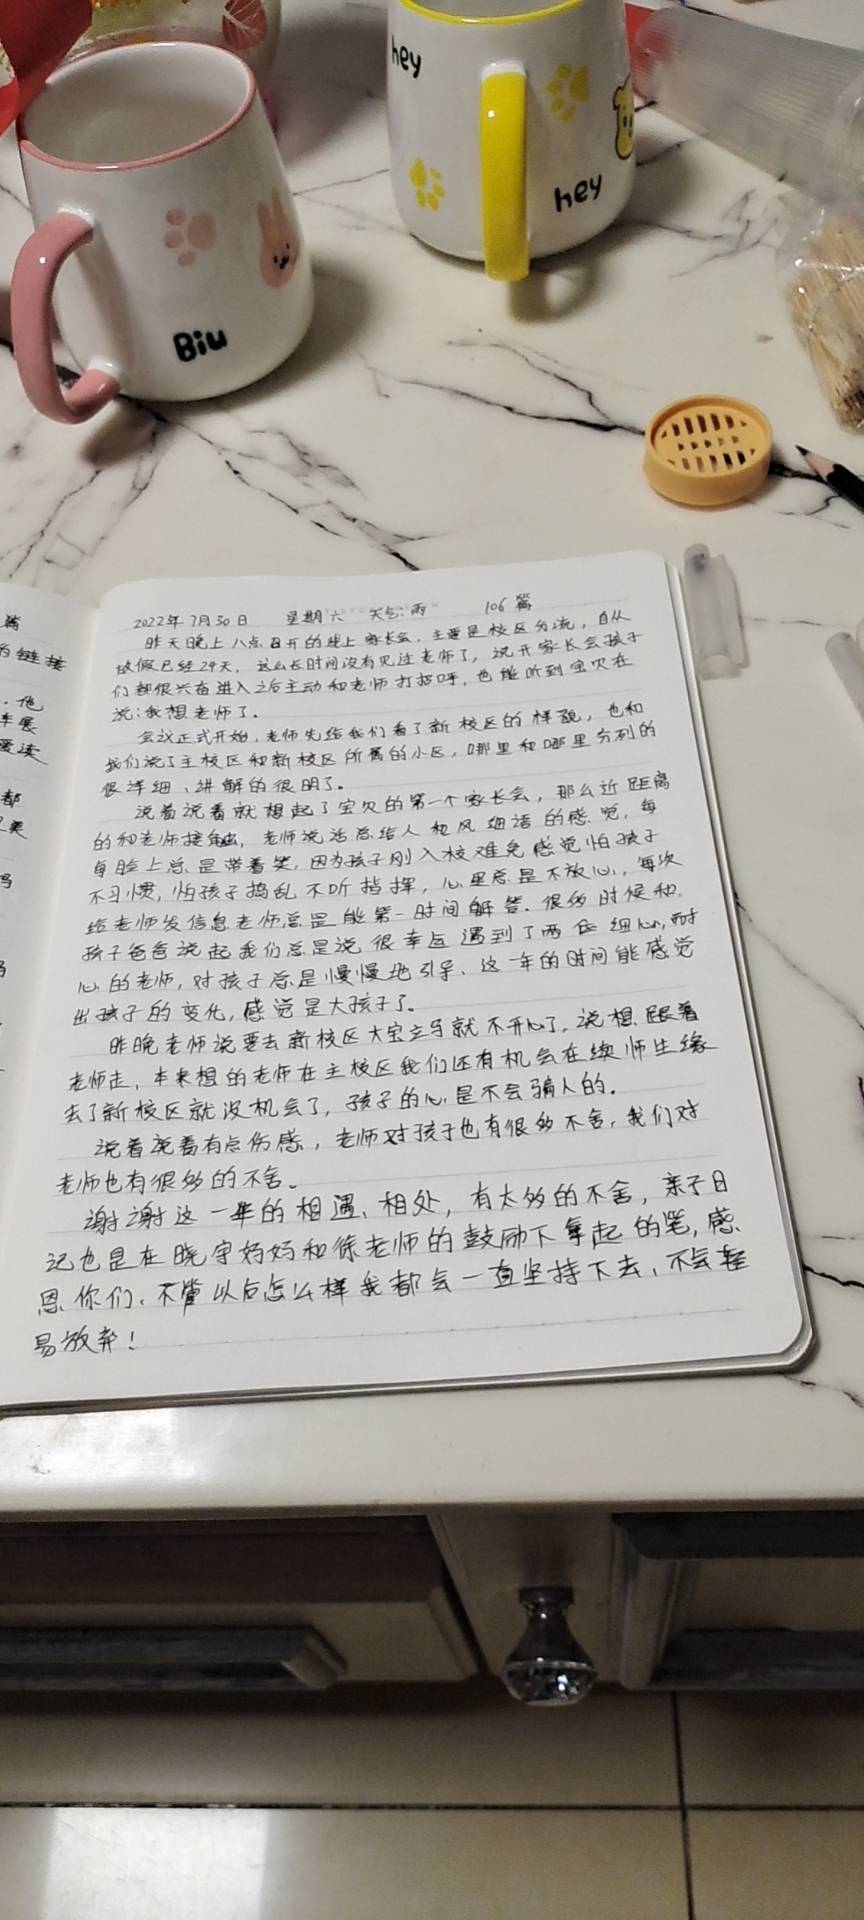 hey
hey
Biu
篇
的链接
他
车展
爱读
都
美
2022年7月30日 星期六 天气:雨 106篇
昨天晚上八点召开的线上家长会,主要是校区分流,自从
放假已经29天,这么长时间没有见过老师了,说开家长会孩子
们都很兴奋进入之后主动和老师打招呼,也能听到宝贝在
说:我想老师了.
会议正式开始,老师先给我们看了新校区的样貌,也和
我们说了主校区和新校区所属的小区,哪里和哪里分别的
很详细、讲解的很明了.
说着说着就想起了宝贝的第一个家长会,那么近距离
的和老师接触,老师说话总给人和风细语的感觉,每
每脸上总是带着笑,因为孩子刚入校难免感觉怕孩子
不习惯,怕孩子捣乱不听指挥,心里总是不放心,每次
给老师发信息老师总是能第一时间解答.很多时候和
孩子爸爸说起我们总是说很幸运遇到了两位细心,耐
心的老师,对孩子总是慢慢地引导、这一年的时间能感觉
出孩子的变化,感觉是大孩子了.
昨晚老师说要去新校区大宝立马就不开心了,说想跟着
老师走,本来想的老师在主校区我们还有机会在续师生缘
去了新校区就没机会了,孩子的心是不会骗人的.
说着说着有点伤感,老师对孩子也有很多不舍,我们对
老师也有很多的不舍.
谢谢这一年的相遇、相处,有太多的不舍,亲子日
记也是在晓宇妈妈和徐老师的鼓励下拿起的笔,感
恩你们、不管以后怎么样我都会一直坚持下去、不会轻
易放弃!